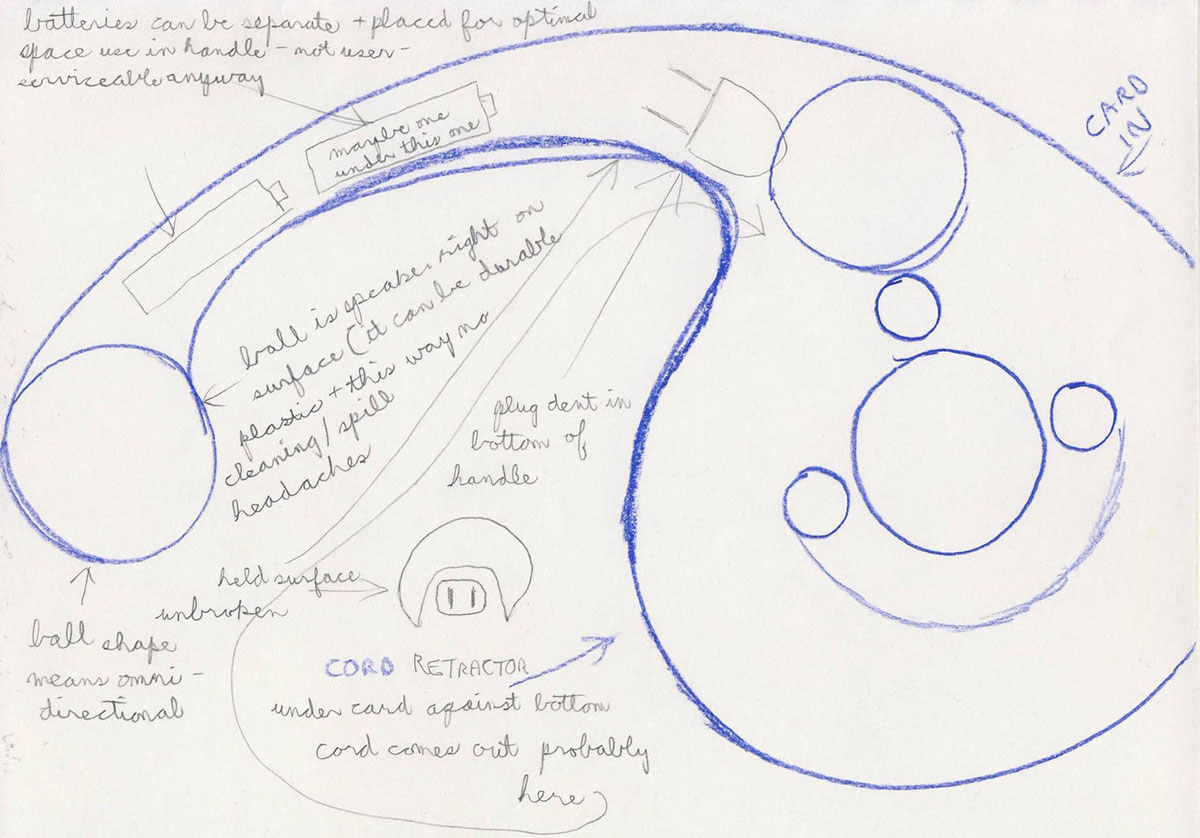 batteries can be separate + placed for optimal
space use in handle - not user-
serviceable anyway
maybe one
under this one
CARD
IN
ball is speaker right on
surface (it can be durable
plastic + this way no
cleaning/spill
headaches
plug dent in
bottom of
handle
held surface
unbroken
ball shape
means omni-
directional
CORD RETRACTOR
under card against bottom
cord comes out probably
here